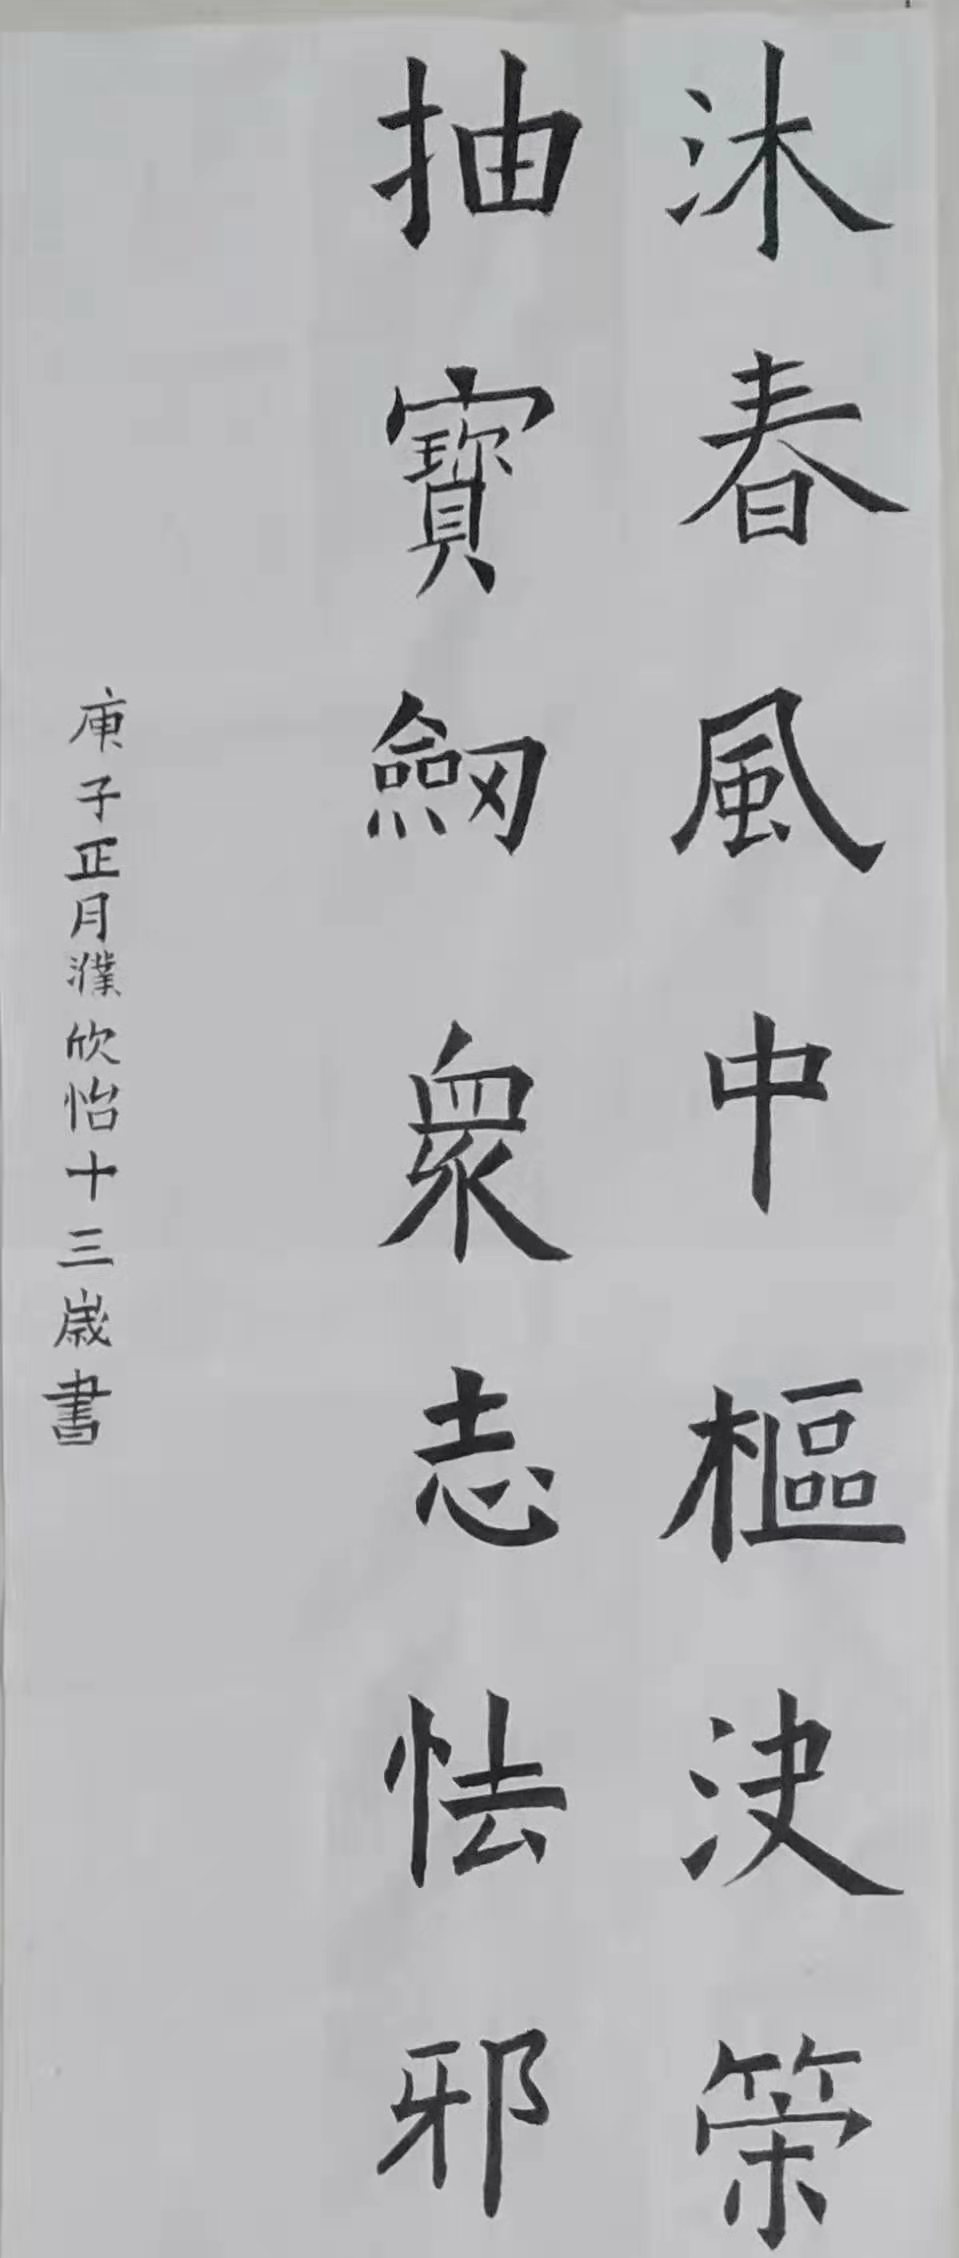 沐春風中樞決策
抽寶劒衆志怯邪
庚子正月濮欣怡十三歲書